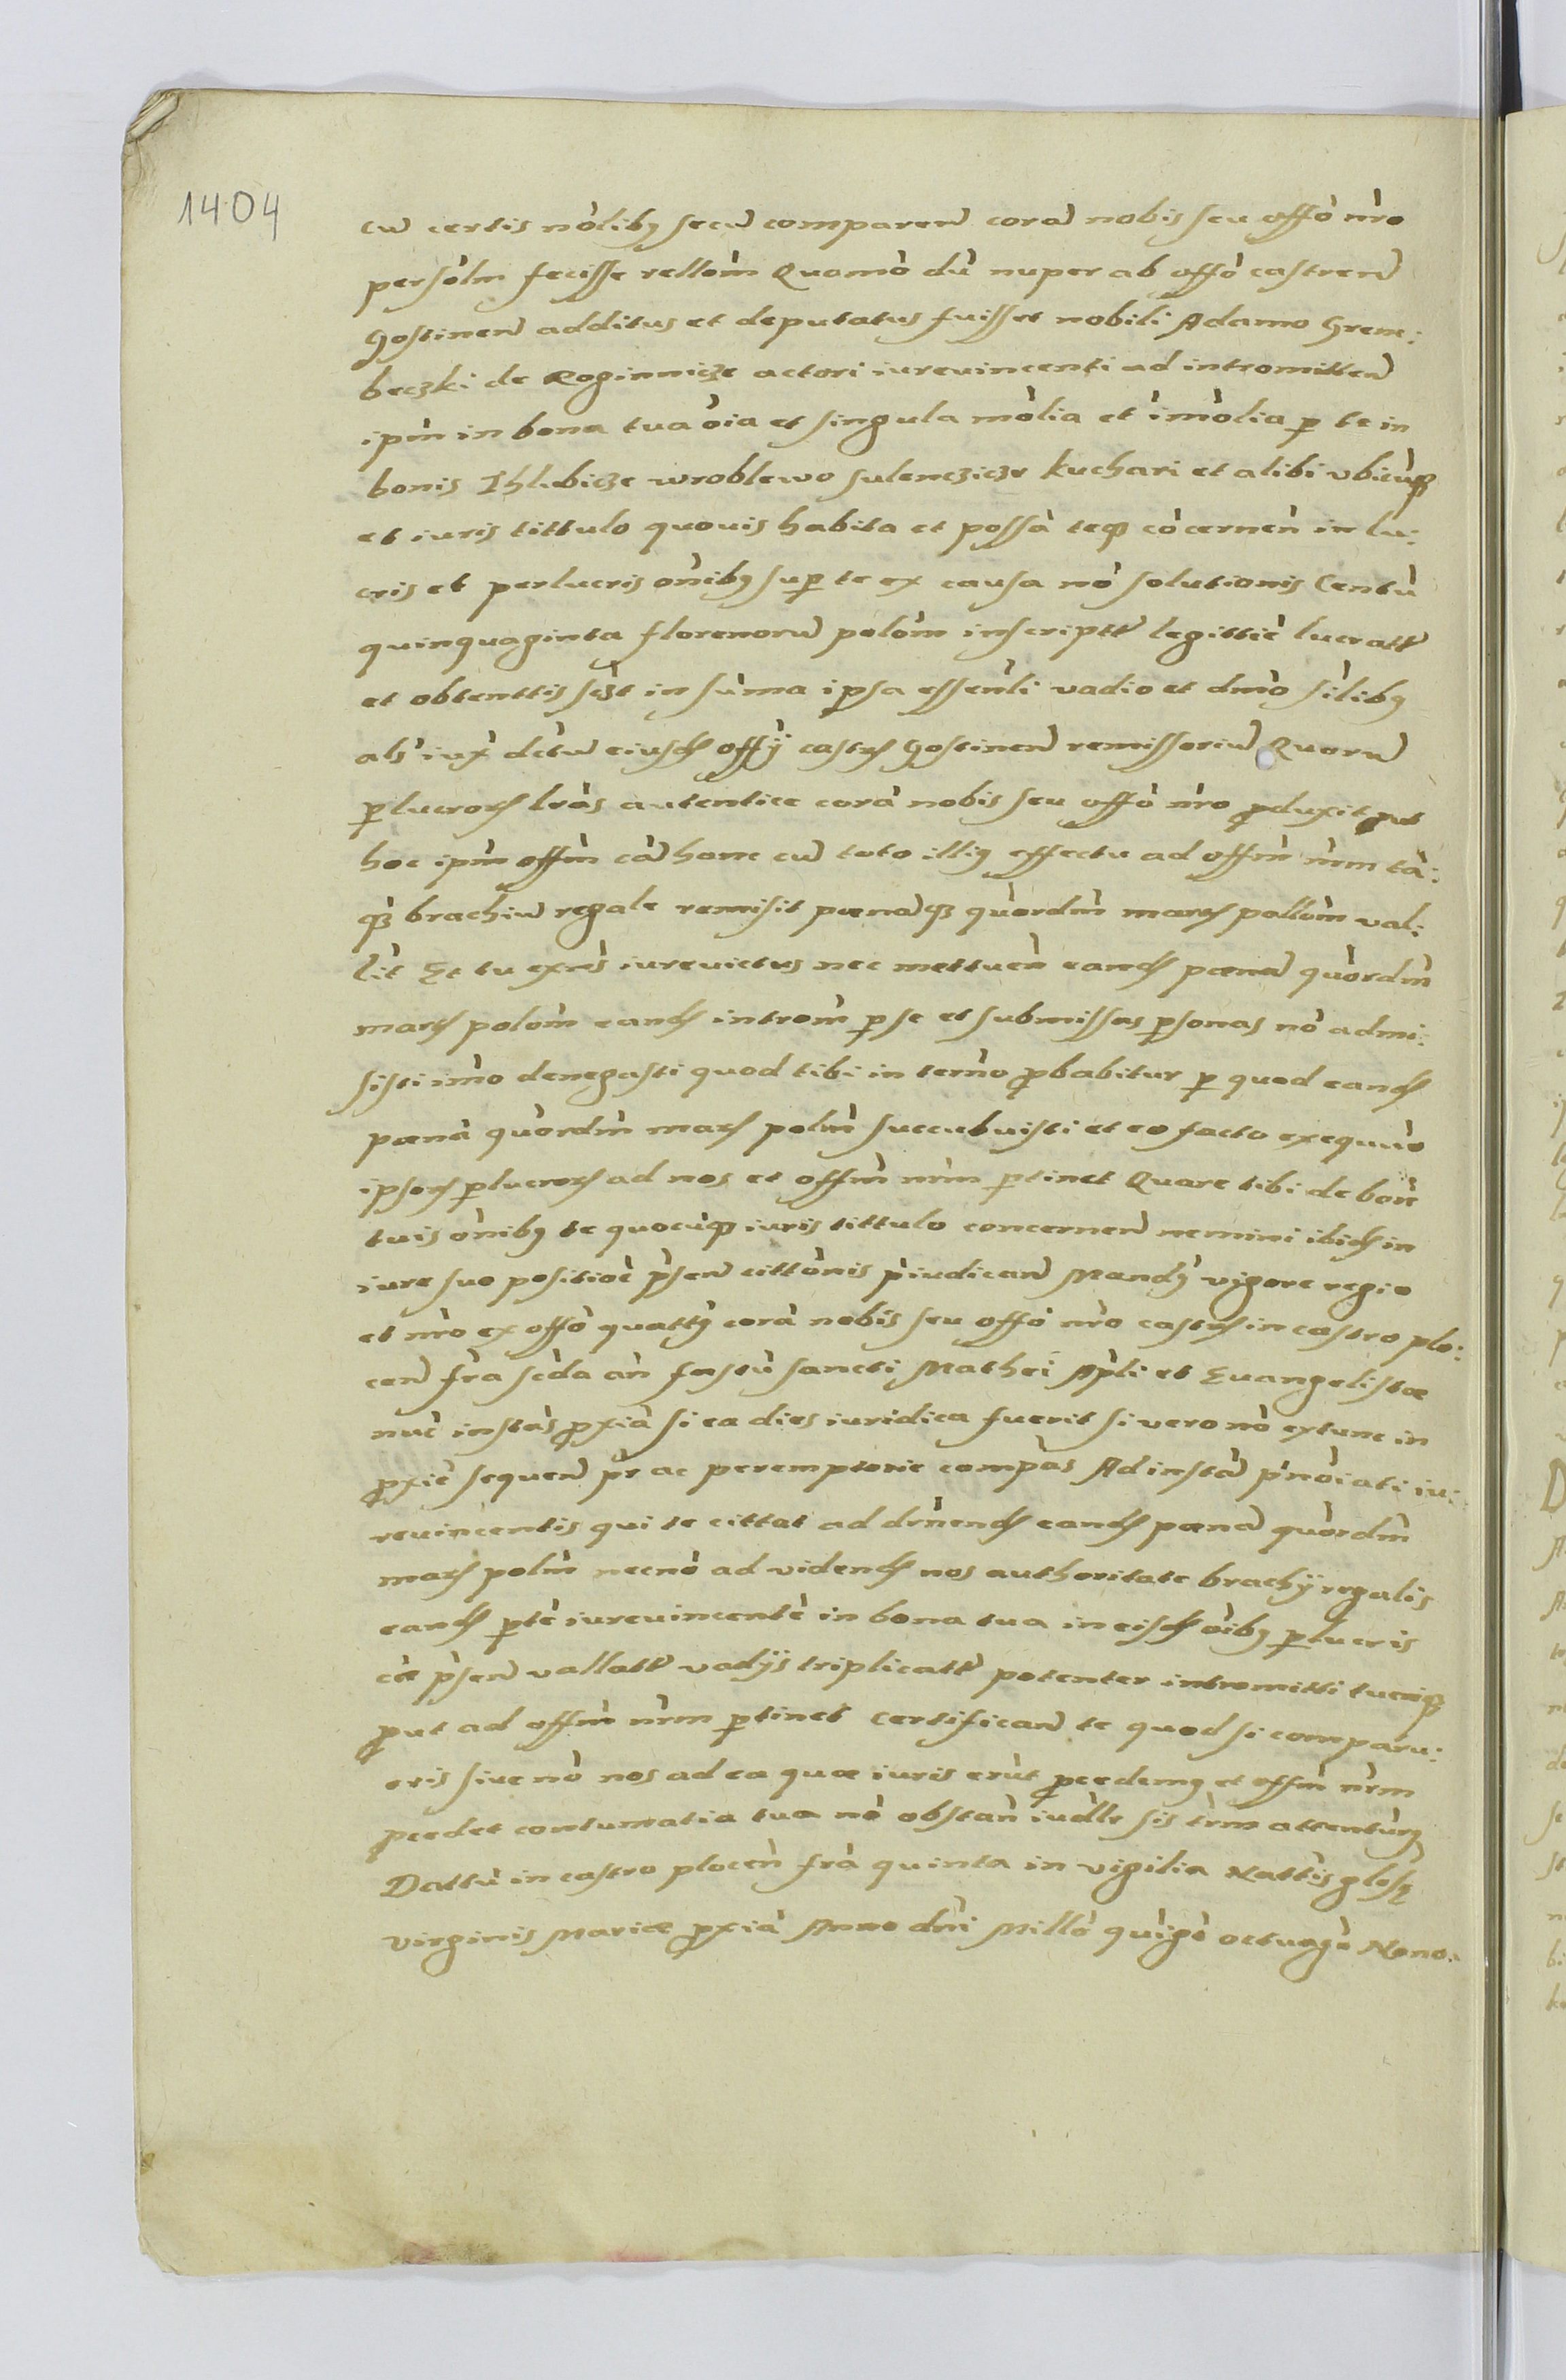 1404
cu̅ certis no̅libꝫ secu̅ comparen̅ cora̅ nobis seu offo̅ nr̅o
perso̅lm fecisse rello̅m Quomo̅ du̅ nuper ab offo̅ castren̅
Gostinen̅ additus et deputatus fuisset nobili Adamo Grem:
beczki de Roginnicze actori iurevincenti ad intromitten̅
ipm̅ in bona tua o̅ia et singula mo̅lia et i̅mo̅lia ꝑ te in
bonis Ihlubicze wroblewo sulenczicze kuchari et alibi vbicu̅qꝫ
et iuris tittulo quovis habita et possa̅ teqꝫ co̅cernen̅ in lu:
cris et perlucris on̅ibꝫ suꝑ te ex causa no̅ solutionis Centu̅
quinquaginta florenoru̅ polo̅m inscriptt̅ legittie̅ lucratt̅
et obtenttis scz̅t in su̅ma ipsa essen̅li vadio et dm̅o si̅libꝫ
als̅ iux̅ dc̅tu̅ eiusdꝫ offÿ castrꝫ Gostinen̅ remissoriu̅ Quoru̅
ꝑlucrorꝫ lr̅as autentice cora̅ nobis seu offo̅ nr̅o ꝓduxit ꝓut
hoc ipm̅ offm̅ ca̅ hanc cu̅ toto illiꝫ effectu ad offm̅ nr̅m ta̅:
qꝫ brachiu̅ regale remisit pœna̅qꝫ qu̅ordm̅ marcꝫ pollo̅m val:
lit̅ Et tu exn̅s iurevictus nec mettuen̅ eandꝫ pœna̅ qu̅ordm̅
marcꝫ polo̅m eandꝫ introm̅ ꝑ se et submissas ꝑsonas no̅ admi:
sisti im̅o denegasti quod tibi in term̅o ꝓbabitur ꝑ quod eandꝫ
pœna̅ qu̅ordm̅ marcꝫ polm̅ succubuisti et eo facto exequu̅o
ipsorꝫ ꝑlucrorꝫ ad nos et offm̅ nr̅m ꝑtinet Quare tibi de bon̅
tuis on̅ibꝫ te quocu̅qꝫ iuris tittulo concernen̅ nemini ibidꝫ in
iure suo positioe̅ p̅sen̅ citto̅nis p̅iudican̅ Mandꝫ vigore regio
et nr̅o ex offo̅ quattꝫ cora̅ nobis seu offo̅ nr̅o castrꝫ in castro plo:
cen̅ fr̅a sc̅da an̅ festu̅ sancti Mathei Ap̅li et Euangelistæ
nu̅c insta̅s ꝓxia̅ si ea dies iuridica fuerit si vero no̅ extunc in
ꝓxie̅ sequen̅ p̅r ac peremptorie compa̅s Ad insta̅ p̅no̅iati iu:
revincentis qui te cittat ad drm̅endꝫ eandꝫ pœna̅ qu̅ordm̅
marcꝫ polm̅ necno̅ ad videndꝫ nos authoritate brachÿ regalis
eandꝫ ꝑte̅ iurevincente̅ in bona tua in eisdꝫ oi̅bꝫ ꝑlucris
ce̅ p̅sen̅ vallatt̅ vadÿs triplicatt̅ potenter intromitti tueriqꝫ
ꝓut ad offm̅ nr̅m ꝑtinet certifican̅ te quod si comparu:
eris siue no̅ nos ad ea quæ iuris eru̅t ꝓcedemꝫ et offm̅ nr̅m
ꝓcedet contumatia tua no̅ obstan̅ iudlr̅ sis trm̅ attenturꝫ
Dattu̅ in castro plocen̅ fr̅a quinta in vigilia Natti̅s glosꝫ
virginis Mariæ ꝓxia̅ Anno dn̅i Millo̅ qui̅go̅ octuago̅ Nono.